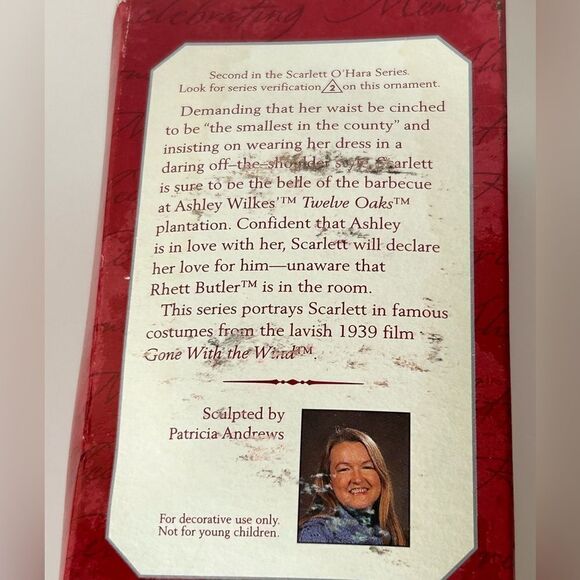 Celebrating Memor
Second in the Scarlett O'Hara Series.
Look for series verification 2 on this ornament.
Demanding that her waist be cinched
to be "the smallest in the county" and
insisting on wearing her dress in a
daring off-the-shoulder style, Scarlett
is sure to be the belle of the barbecue
at Ashley Wilkes'™ Twelve Oaks™
plantation. Confident that Ashley
is in love with her, Scarlett will declare
her love for him—unaware that
Rhett Butler™ is in the room.
This series portrays Scarlett in famous
costumes from the lavish 1939 film
Gone With the Wind™.
Sculpted by
Patricia Andrews
For decorative use only.
Not for young children.